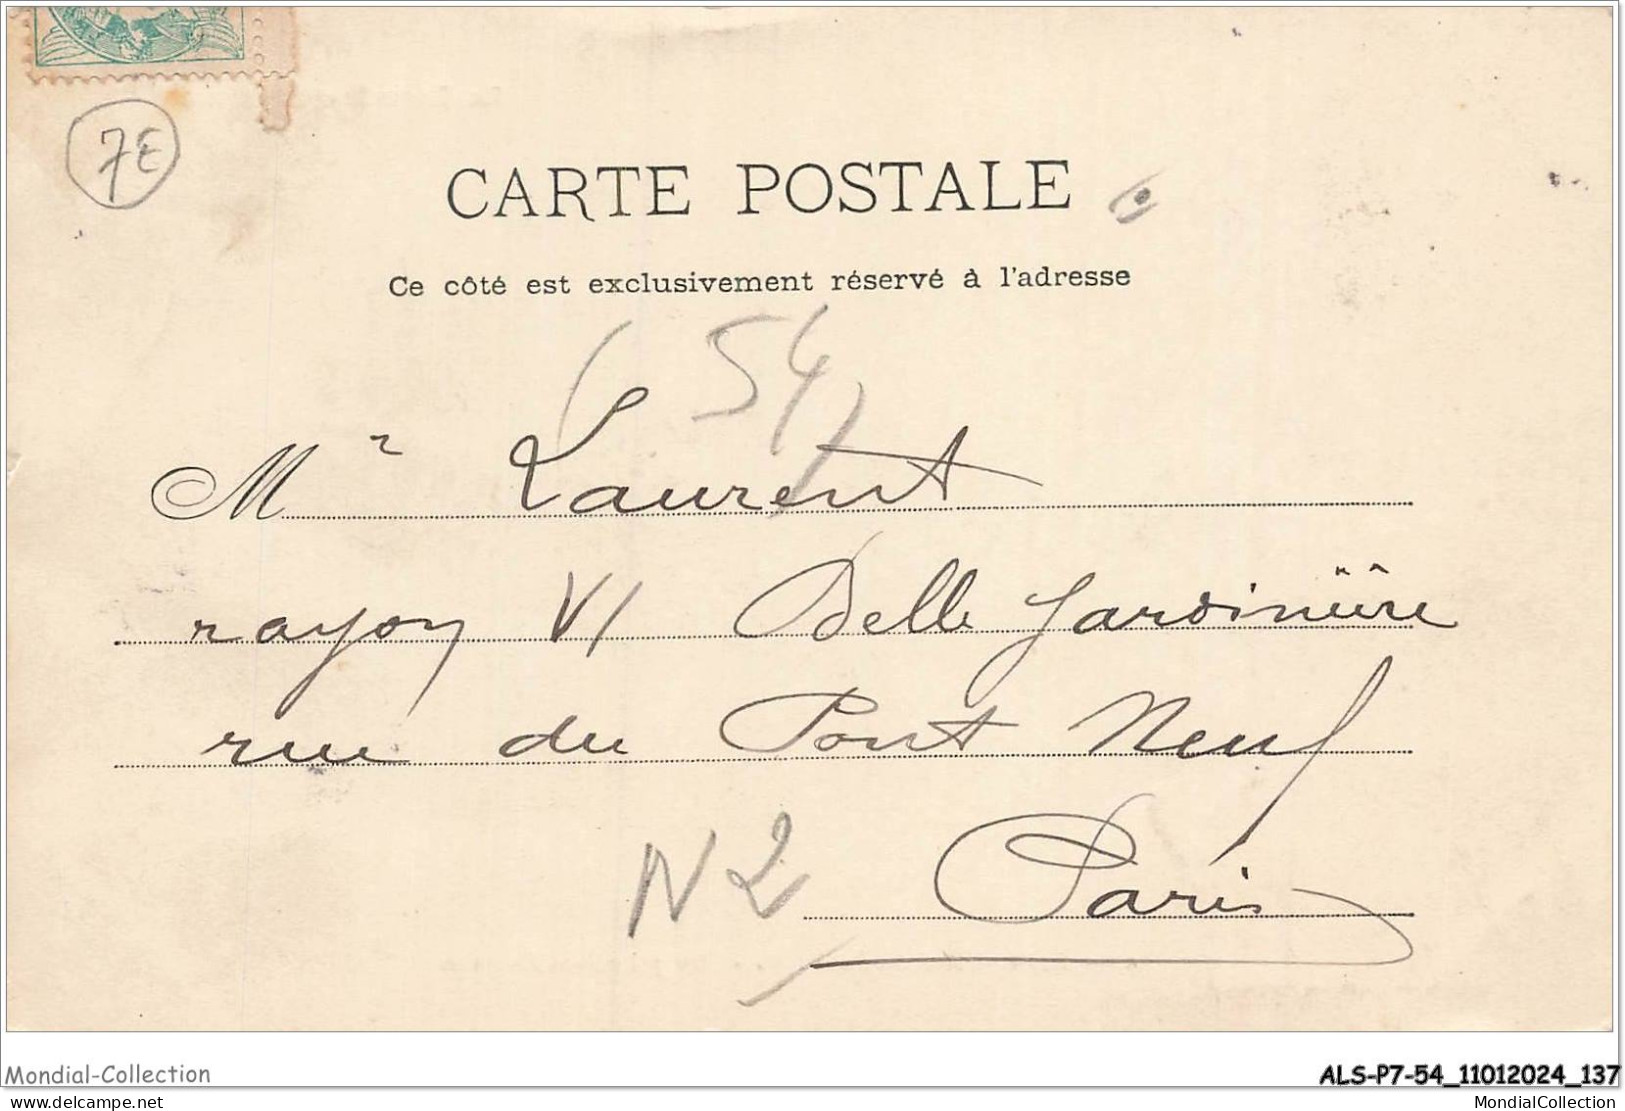 7E
CARTE POSTALE
Ce côté est exclusivement réservé à l'adresse
(54)
Mr Laurent
rayon VI Belle Jardinière
rue du Pont Neuf
N 2
Paris
Mondial-Collection
ALS-P7-54_11012024_137
delcampe.net
MondialCollection